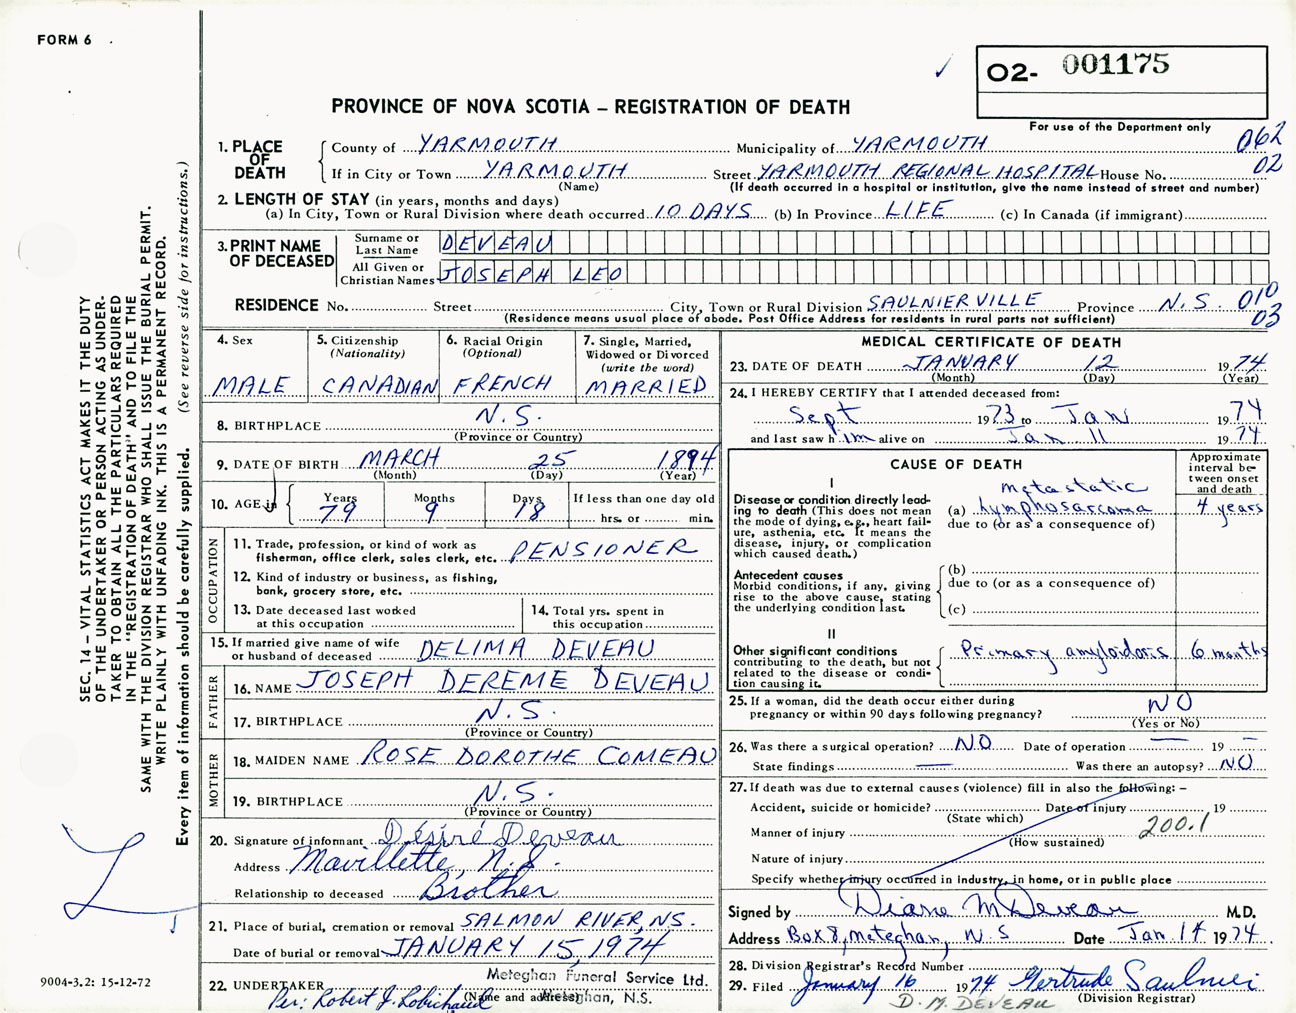 FORM 6
O2- 001175
PROVINCE OF NOVA SCOTIA – REGISTRATION OF DEATH
For use of the Department only
062
02
1. PLACE OF DEATH
County of YARMOUTH Municipality of YARMOUTH
If in City or Town YARMOUTH Street YARMOUTH REGIONAL HOSPITAL House No.
(Name) (If death occurred in a hospital or institution, give the name instead of street and number)
2. LENGTH OF STAY (in years, months and days)
(a) In City, Town or Rural Division where death occurred 10 DAYS (b) In Province LIFE (c) In Canada (if immigrant)
3. PRINT NAME OF DECEASED
Surname or Last Name DEVEAU
All Given or Christian Names JOSEPH LEO
RESIDENCE No. Street City, Town or Rural Division SAULNIERVILLE Province N.S. 010
(Residence means usual place of abode. Post Office Address for residents in rural parts not sufficient) 03
4. Sex
MALE
5. Citizenship
(Nationality)
CANADIAN
6. Racial Origin
(Optional)
FRENCH
7. Single, Married,
Widowed or Divorced
(write the word)
MARRIED
8. BIRTHPLACE N.S.
(Province or Country)
9. DATE OF BIRTH MARCH 25 1894
(Month) (Day) (Year)
10. AGE in
Years Months Days If less than one day old
79 9 18 hrs. or min.
OCCUPATION
11. Trade, profession, or kind of work as
fisherman, office clerk, sales clerk, etc. PENSIONER
12. Kind of industry or business, as fishing,
bank, grocery store, etc.
13. Date deceased last worked
at this occupation
14. Total yrs. spent in
this occupation
15. If married give name of wife
or husband of deceased DELIMA DEVEAU
FATHER
16. NAME JOSEPH DEREME DEVEAU
17. BIRTHPLACE N.S.
(Province or Country)
MOTHER
18. MAIDEN NAME ROSE DOROTHE COMEAU
19. BIRTHPLACE N.S.
(Province or Country)
20. Signature of informant Désiré Deveau
Address Mavillette, N.S.
Relationship to deceased Brother
21. Place of burial, cremation or removal SALMON RIVER, N.S.
Date of burial or removal JANUARY 15, 1974
22. UNDERTAKER Meteghan Funeral Service Ltd.
(Name and address) Meteghan, N.S.
Per: Robert J. Robichaud
MEDICAL CERTIFICATE OF DEATH
23. DATE OF DEATH JANUARY 12 1974
(Month) (Day) (Year)
24. I HEREBY CERTIFY that I attended deceased from:
Sept 1973 to Jan 1974
and last saw him alive on Jan 11 1974
CAUSE OF DEATH
Approximate
interval be-
tween onset
and death
I
Disease or condition directly lead-
ing to death (This does not mean
the mode of dying, e.g., heart fail-
ure, asthenia, etc. It means the
disease, injury, or complication
which caused death.)
metastatic
(a) lymphosarcoma 4 years
due to (or as a consequence of)
Antecedent causes
Morbid conditions, if any, giving
rise to the above cause, stating
the underlying condition last.
(b)
due to (or as a consequence of)
(c)
II
Other significant conditions
contributing to the death, but not
related to the disease or condi-
tion causing it.
Primary amyloidosis 6 months
25. If a woman, did the death occur either during
pregnancy or within 90 days following pregnancy? NO
(Yes or No)
26. Was there a surgical operation? NO Date of operation — 19 —
State findings — Was there an autopsy? NO
27. If death was due to external causes (violence) fill in also the following: –
Accident, suicide or homicide? Date of injury 19
(State which)
Manner of injury 200.1
(How sustained)
Nature of injury
Specify whether injury occurred in industry, in home, or in public place
Signed by Diane M Deveau M.D.
Address Box 8, Meteghan, N.S Date Jan. 14 1974
28. Division Registrar's Record Number
29. Filed January 16 1974 Gertrude Saulnier
(Division Registrar)
D. M. DEVEAU
SEC. 14 – VITAL STATISTICS ACT MAKES IT THE DUTY
OF THE UNDERTAKER OR PERSON ACTING AS UNDER-
TAKER TO OBTAIN ALL THE PARTICULARS REQUIRED
IN THE "REGISTRATION OF DEATH" AND TO FILE THE
SAME WITH THE DIVISION REGISTRAR WHO SHALL ISSUE THE BURIAL PERMIT.
WRITE PLAINLY WITH UNFADING INK. THIS IS A PERMANENT RECORD.
Every item of information should be carefully supplied. (See reverse side for instructions.)
9004-3.2: 15-12-72